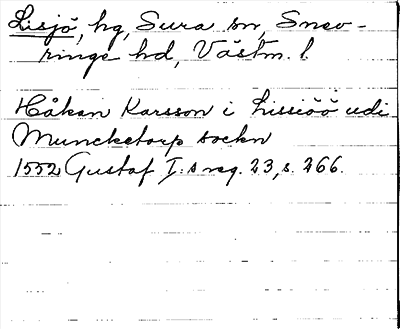 Lisjö, hg, Sura sn, Snev-
ringe hd, Västm. l.
Håkan Karsson i Lissiöö udi
Muncketorp sockn
1552 Gustaf I:s reg. 23, s. 266.